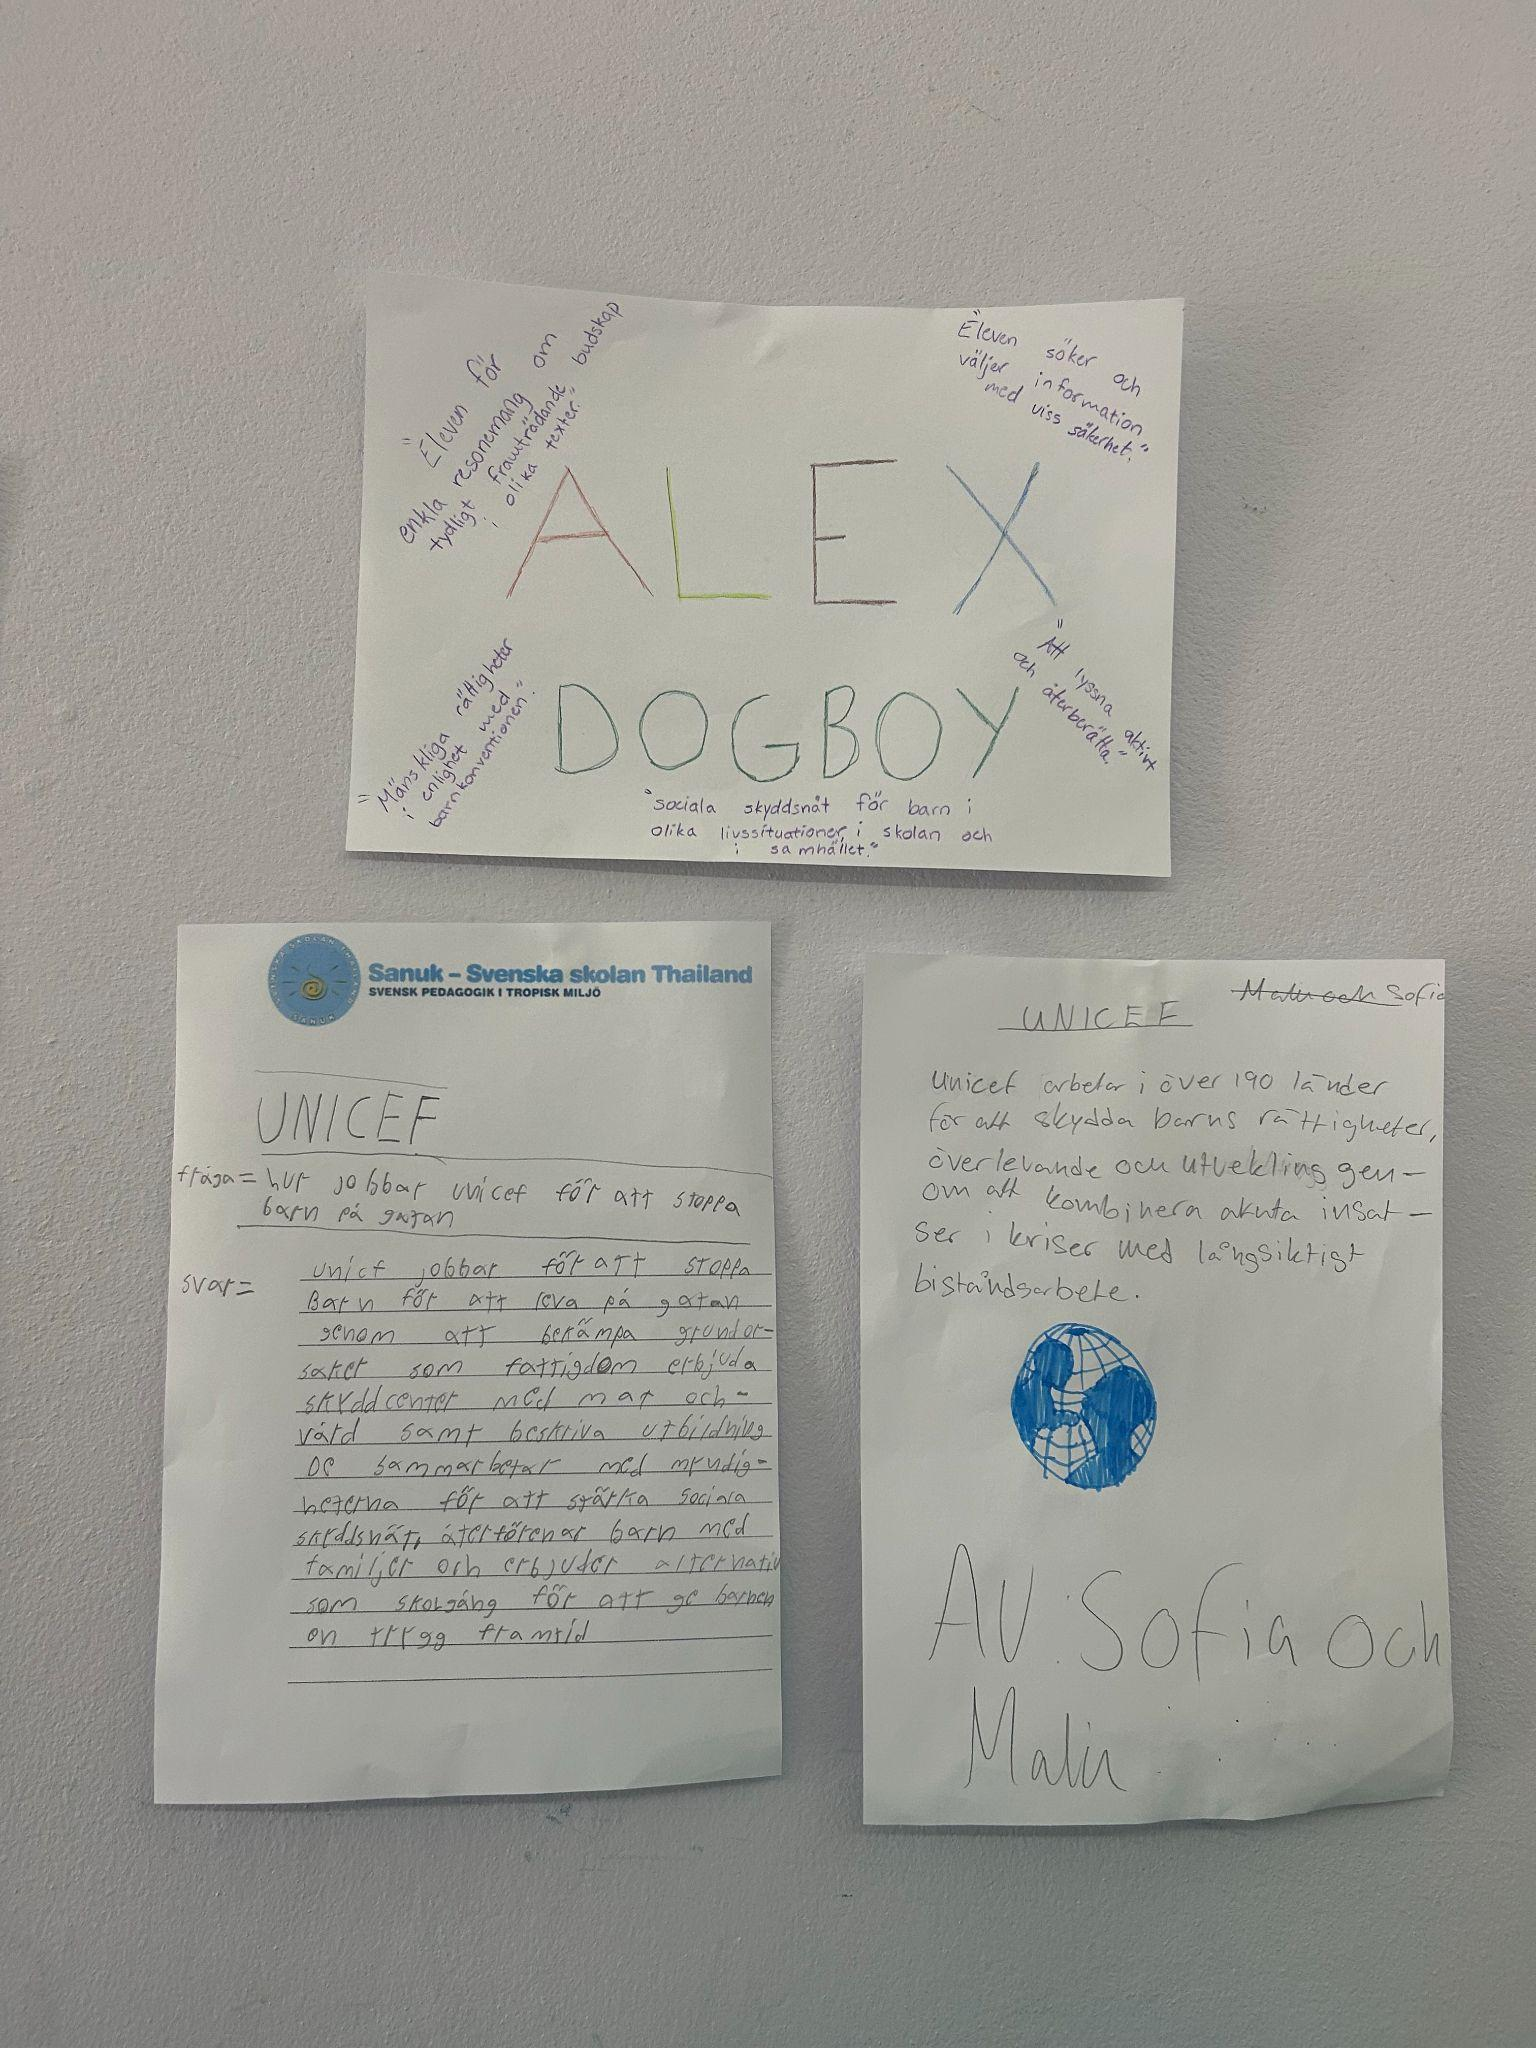 "Eleven för
enkla resonemang om
tydligt framträdande budskap
i olika texter."
"Eleven söker och
väljer information
med viss säkerhet."
ALEX
"Att lyssna aktivt
och återberätta."
"Mänskliga rättigheter
i enlighet med
barnkonventionen."
DOGBOY
"sociala skyddsnät för barn i
olika livssituationer, i skolan och
i samhället."
SVENSKA SKOLAN THAILAND
SANUK
Sanuk – Svenska skolan Thailand
SVENSK PEDAGOGIK I TROPISK MILJÖ
UNICEF
fråga = hur jobbar unicef för att stoppa
barn på gatan
svar =
unicf jobbar för att stoppa
Barn för att leva på gatan
genom att bekämpa grundor-
saker som fattigdom erbjuda
skyddcenter med mat och-
vård samt beskriva utbildning
De sammarbetar med myndig-
heterna för att stärka sociala
skyddsnät, återförenar barn med
familjer och erbjuder alternativ
som skolgång för att ge barnen
en trygg framtid
Malu och Sofia
UNICEF
Unicef arbetar i över 190 länder
för att skydda barns rättigheter,
överlevande och utvekling gen-
om att kombinera akuta insat-
ser i kriser med långsiktigt
biståndsarbete.
AV: Sofia och
Malu